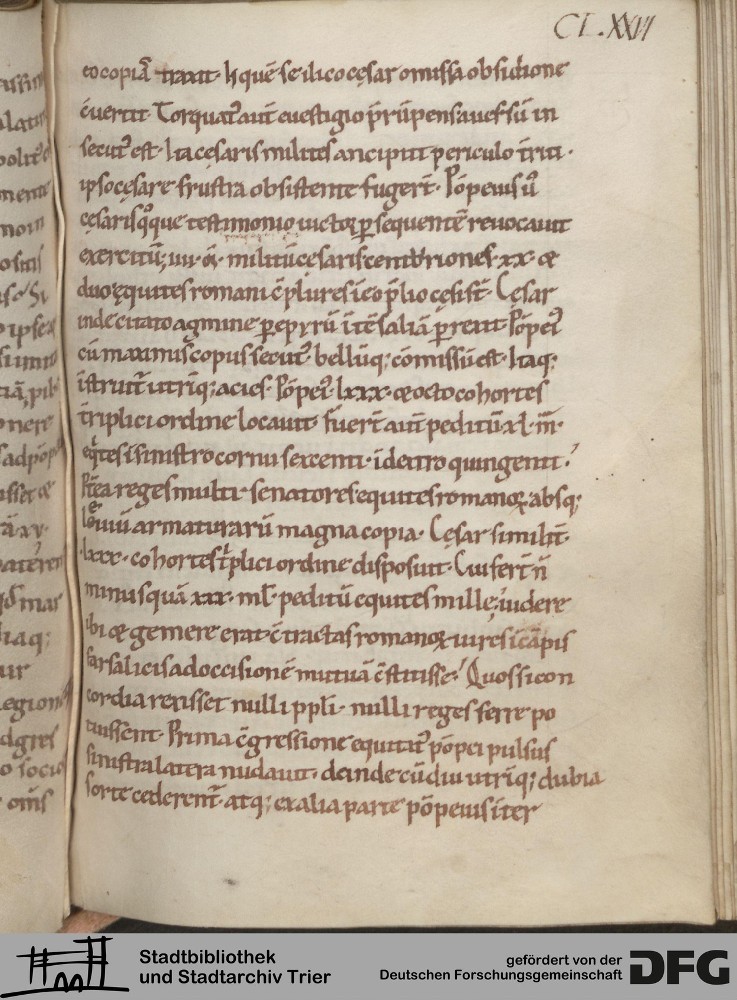 CLXXVI
eo copiā traxit· h quē se ilico cęsar omissa obsidione
ēuertit· Torquat᷒ aūt e uestigio p̄rūpens auersū in
secut᷒ est· Ita cęsaris milites ancipiti periculo t̄riti·
ipso cęsare frustra obsistente fugert̄· Pōpeius ů
cęsaris q̊que testimonio uictor ꝑsequentē reuocauit
exercitū; iiii· ō· militū cęsaris centuriones· xx· &
duo ęquites romani cōplures ī eo p̄lio cęsi st̄· Cęsar
inde citato agmine ꝑ epyrū ī tēsaliā ꝑrexit· Pōpei᷒
cū maximis copiis secut᷒ bellūq; cōmissū est· Itaq;
īstruūt᷒ utriq; acies· Pōpei᷒ lxxx· & octo cohortes
t̄riplici ordine locauit· fuert̄ aūt peditū xl· m̄·
eq̇tes ī sinistro cornu sexcenti· ī dextro quingenti·
P̄t̄ea reges multi· senatores equites romanoꝝ absq;
leuiū armaturarū magna copia· Cęsar similit̄·
·lxxx· cohortes t̊plici ordine disposuit· Cui fert̄ n̄
minus quā xxx· ml̄· peditū equites mille; uidere
ibi & gemere erat· c̄tractas romanoꝝ uires ī cāpis
farsalicis ad occisionē mutuā c̄stitisse· Quos si con
cordia rexisset nulli ppl̄i· nulli reges ferre po
tuissent· Prima c̄gressione equitat᷒ pōpei pulsus
sinistra latera nudauit· deinde cū diu utriq; dubia
sorte cederent᷒· atq; ex alia parte pōpeius iter
Stadtbibliothek
und Stadtarchiv Trier
gefördert von der
Deutschen Forschungsgemeinschaft
DFG